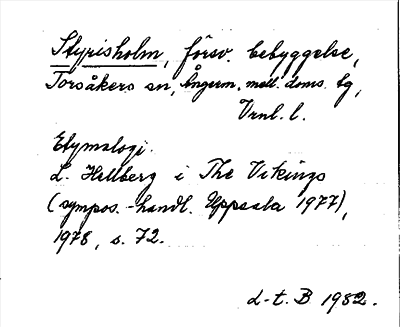 Styrisholm, försv. bebyggelse,
Torsåkers sn, Ångerm. mell. doms. tg,
Vrnl. l.
Etymologi.
L. Hellberg i The Vikings
(sympos.-handl. Uppsala 1977),
1978, s. 72.
L-t. B 1982.